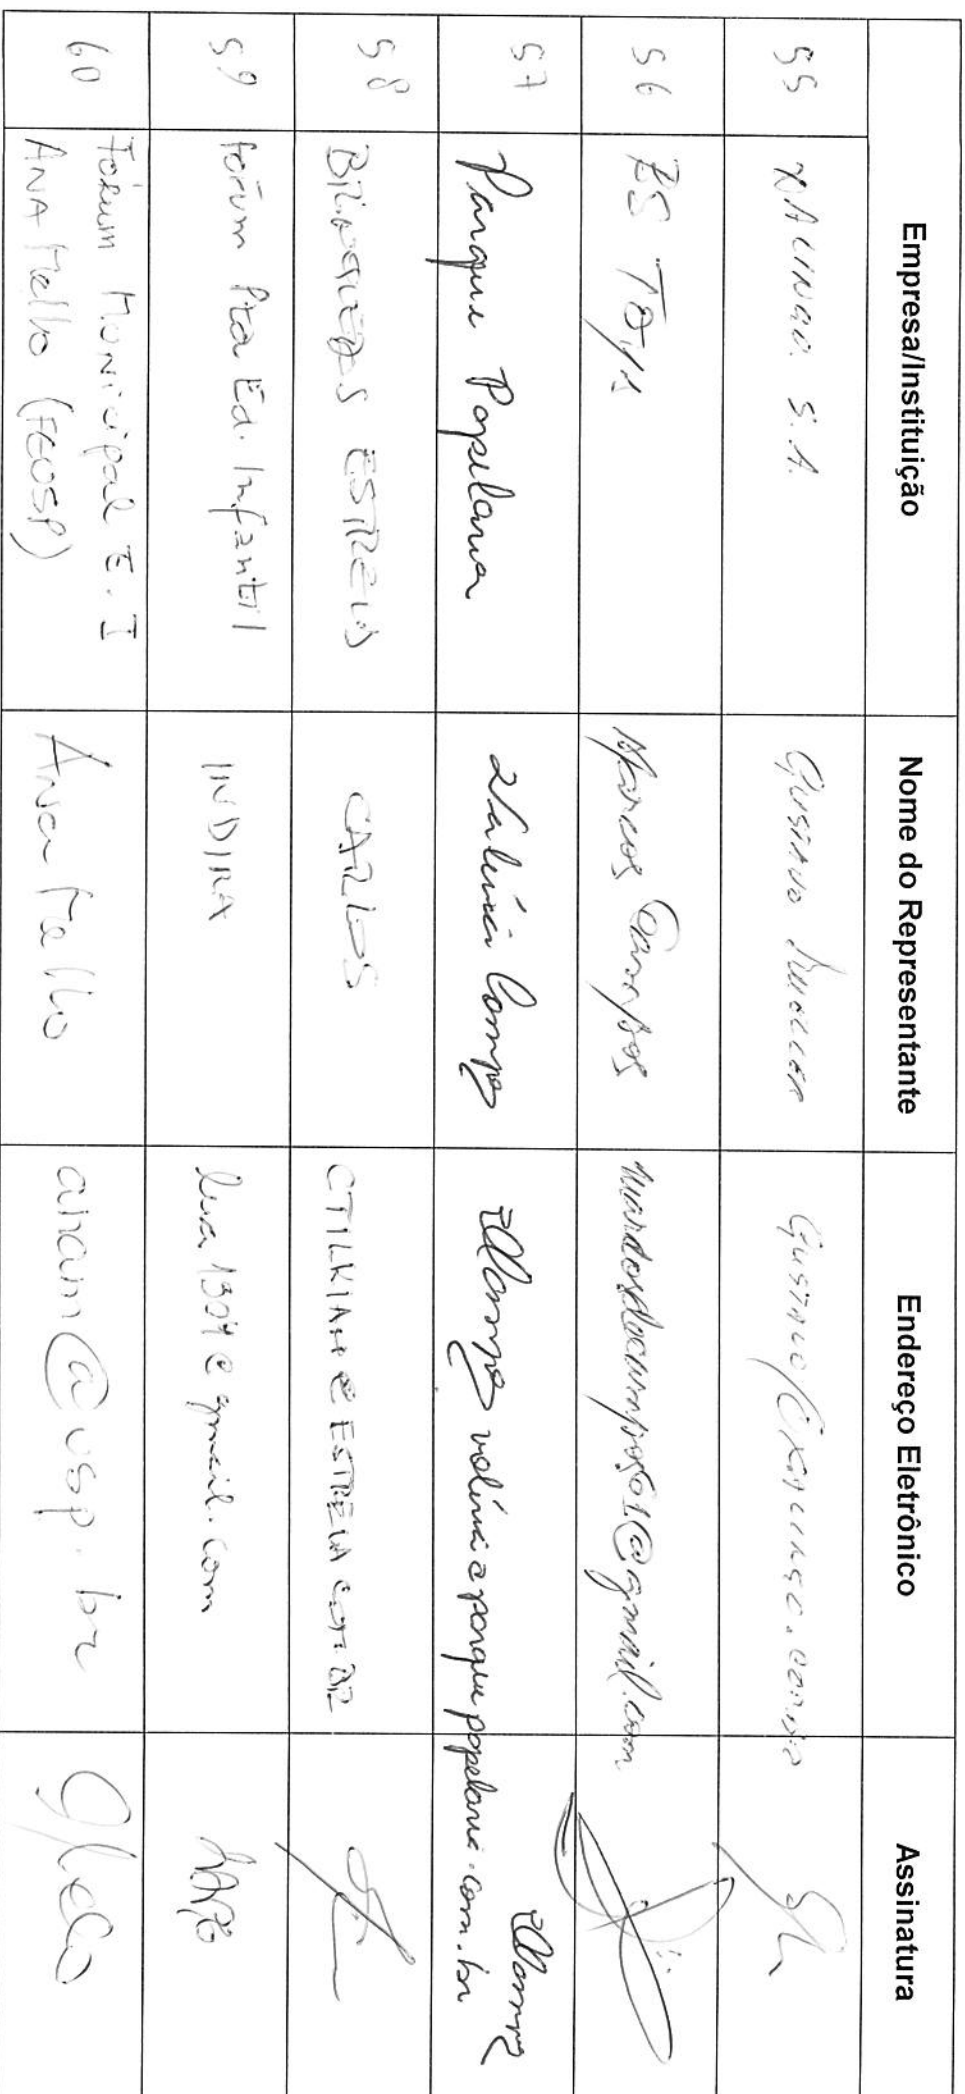 Empresa/Instituição Nome do Representante Endereço Eletrônico Assinatura
55 S.A. Gustavo
56 BS Toys Marcos Campos marcosdecampos01@gmail.com
57 Parque Papelaria Valéria Campos valéria@parquepapelaria.com.br
58 BRINQUEDOS ESTRELA CARLOS CTILKIAN@ESTRELA.COM.BR
59 Fórum Pta Ed. Infantil INDIRA lua1304@gmail.com
60 Fórum Municipal E. I Ana Mello anam@usp.br
ANA Mello (FEUSP)